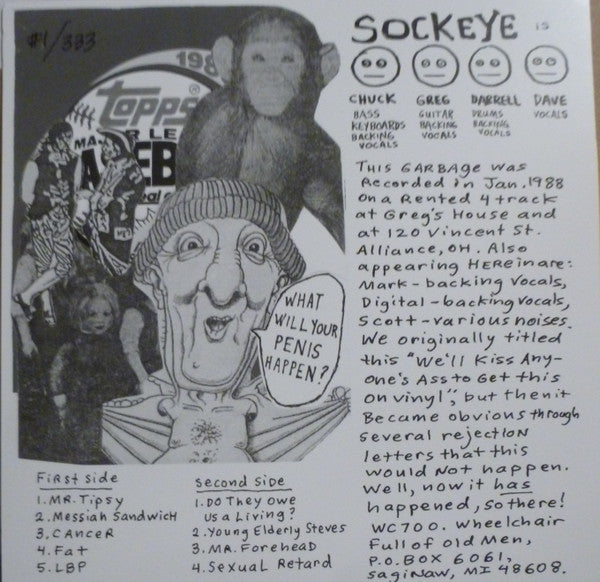 #1/333
198
Topps®
MA
R LE
WHAT
WILL YOUR
PENIS
HAPPEN?
SOCKEYE is
CHUCK
BASS
KEYBOARDS
BACKING
VOCALS
GREG
GUITAR
BACKING
VOCALS
DARRELL
DRUMS
BACKING
VOCALS
DAVE
VOCALS
THIS GARBAGE was
Recorded in Jan. 1988
on a Rented 4 track
at Greg's House and
at 120 Vincent St.
Alliance, OH. Also
appearing HEREin are:
Mark - backing vocals,
Digital - backing vocals,
Scott - various noises.
We originally titled
this "We'll Kiss Any-
one's Ass to Get this
on vinyl", but then it
Became obvious through
several rejection
letters that this
would Not happen.
Well, now it has
happened, so there!
WC700. Wheelchair
Full of Old Men,
P.O. Box 6061,
Saginaw, MI 48608.
First side
1. MR. Tipsy
2. Messiah Sandwich
3. CAnceR
4. Fat
5. LBP
Second Side
1. DO They owe
us a Living?
2. Young Elderly Steves
3. MR. ForeheaD
4. Sexual Retard